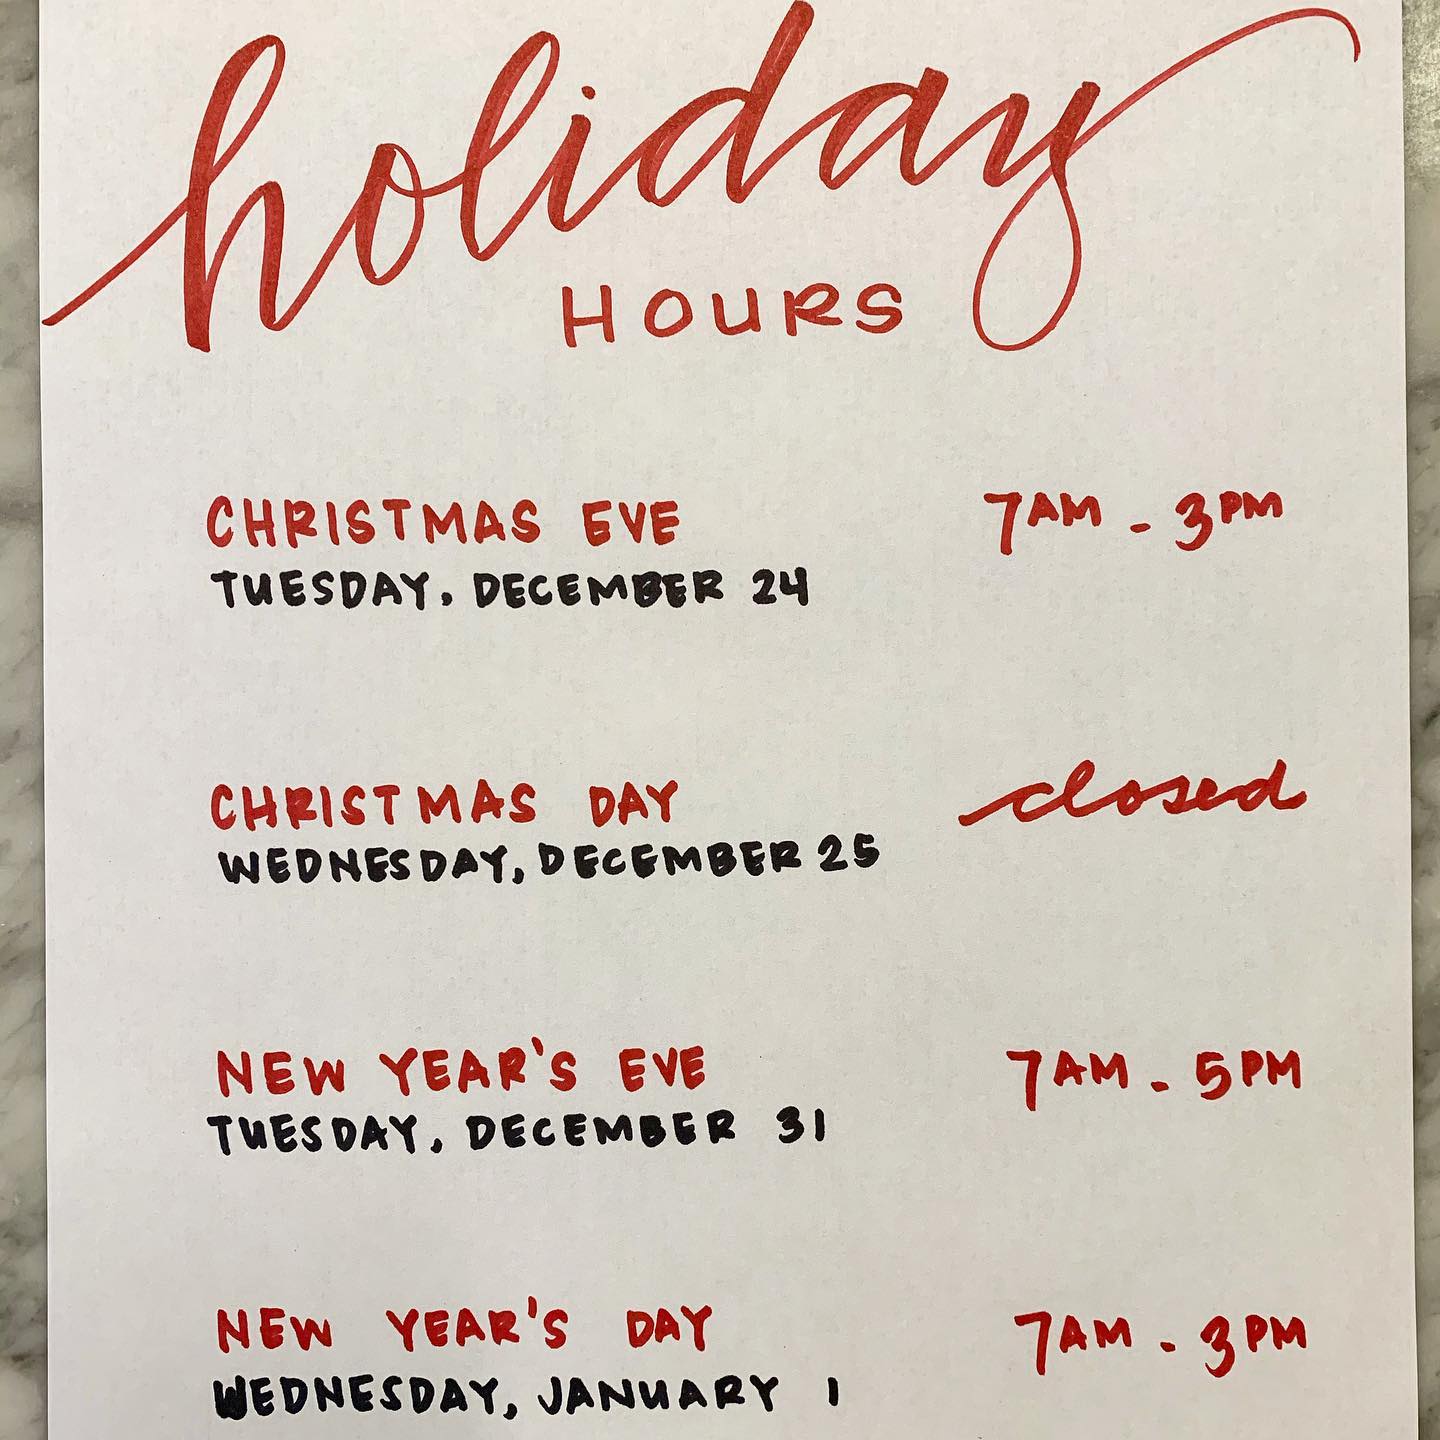 holiday
HOURS
CHRISTMAS EVE 7AM - 3PM
TUESDAY, DECEMBER 24
CHRISTMAS DAY closed
WEDNESDAY, DECEMBER 25
NEW YEAR'S EVE 7AM - 5PM
TUESDAY, DECEMBER 31
NEW YEAR'S DAY 7AM - 3PM
WEDNESDAY, JANUARY 1